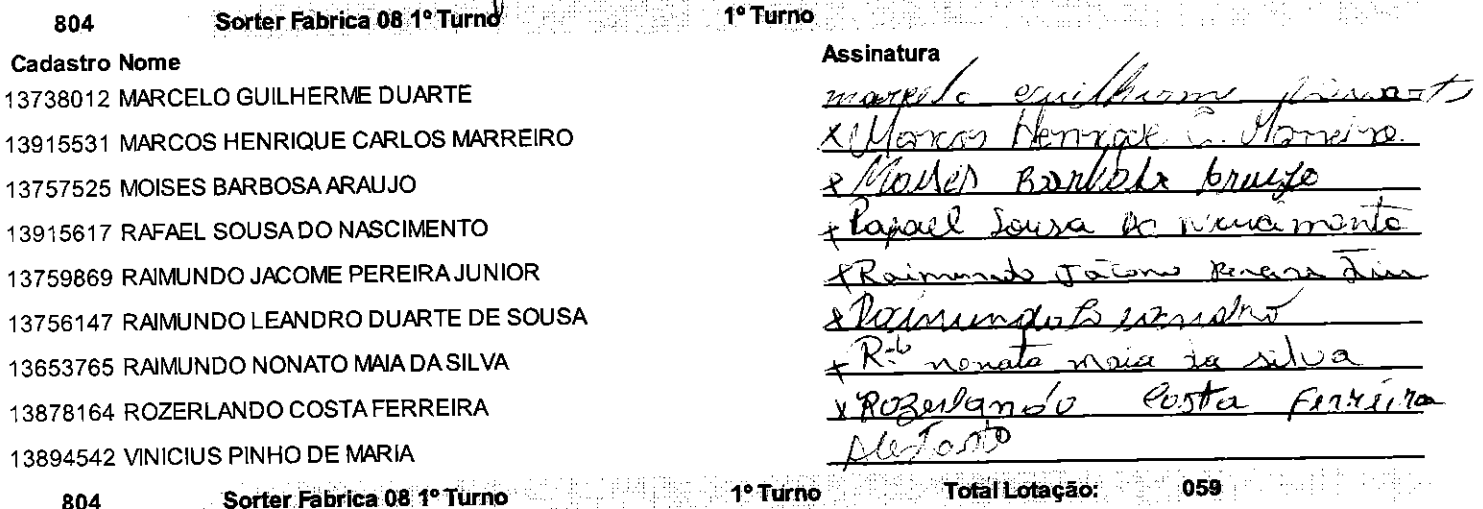 804 Sorter Fabrica 08 1º Turno 1º Turno
Cadastro Nome Assinatura
13738012 MARCELO GUILHERME DUARTE marcelo guilherme
13915531 MARCOS HENRIQUE CARLOS MARREIRO x Marcos Henrique C. Marreiro.
13757525 MOISES BARBOSA ARAUJO x Moises Barbosa Araujo
13915617 RAFAEL SOUSA DO NASCIMENTO x Rafael Sousa do
13759869 RAIMUNDO JACOME PEREIRA JUNIOR x Raimundo Jácome Pereira
13756147 RAIMUNDO LEANDRO DUARTE DE SOUSA x Raimundo
13653765 RAIMUNDO NONATO MAIA DA SILVA x nonato maia da silva
13878164 ROZERLANDO COSTA FERREIRA x Rozerlando Costa Ferreira
13894542 VINICIUS PINHO DE MARIA
804 Sorter Fabrica 08 1º Turno 1º Turno Total Lotação: 059